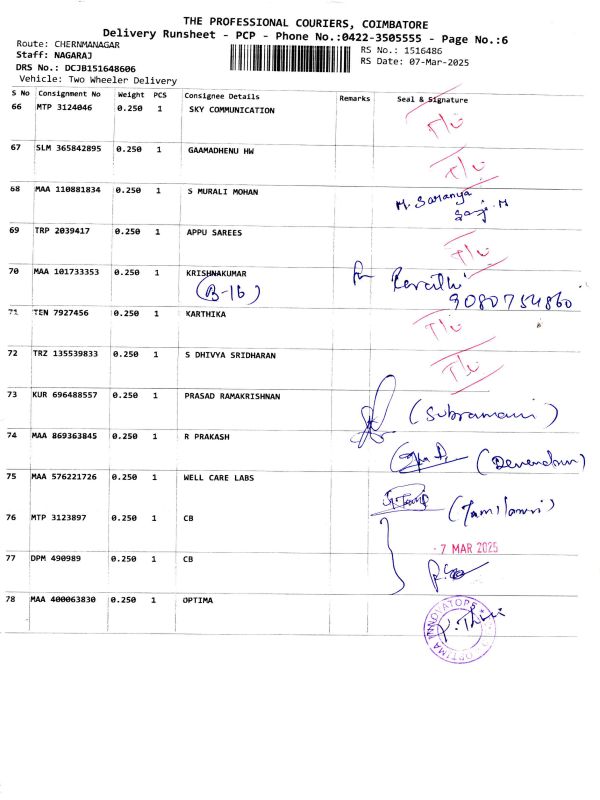 THE PROFESSIONAL COURIERS, COIMBATORE
Delivery Runsheet - PCP - Phone No.:0422-3505555 - Page No.:6
Route: CHERNMANAGAR
Staff: NAGARAJ
DRS No.: DCJB151648606
Vehicle: Two Wheeler Delivery
RS No.: 1516486
RS Date: 07-Mar-2025
S No Consignment No Weight PCS Consignee Details Remarks Seal & Signature
66 MTP 3124046 0.250 1 SKY COMMUNICATION T/L
67 SLM 365842895 0.250 1 GAAMADHENU HW T/L
68 MAA 110881834 0.250 1 S MURALI MOHAN M. Saranya
69 TRP 2039417 0.250 1 APPU SAREES T/L
70 MAA 101733353 0.250 1 KRISHNAKUMAR Revathi
(B-16) 9080754860
71 TEN 7927456 0.250 1 KARTHIKA T/L
72 TRZ 135539833 0.250 1 S DHIVYA SRIDHARAN T/L
73 KUR 696488557 0.250 1 PRASAD RAMAKRISHNAN (Subramani)
74 MAA 869363845 0.250 1 R PRAKASH
75 MAA 576221726 0.250 1 WELL CARE LABS
76 MTP 3123897 0.250 1 CB
- 7 MAR 2025
77 DPM 490989 0.250 1 CB
78 MAA 400063830 0.250 1 OPTIMA
OPTIMA INNOVATOPS